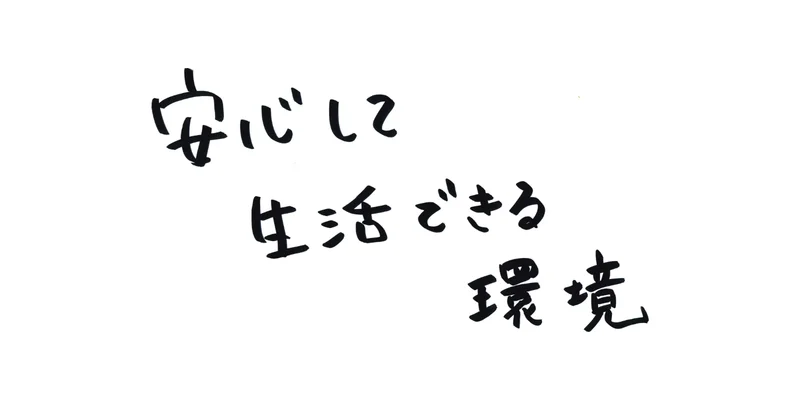 安心して
生活できる
環境